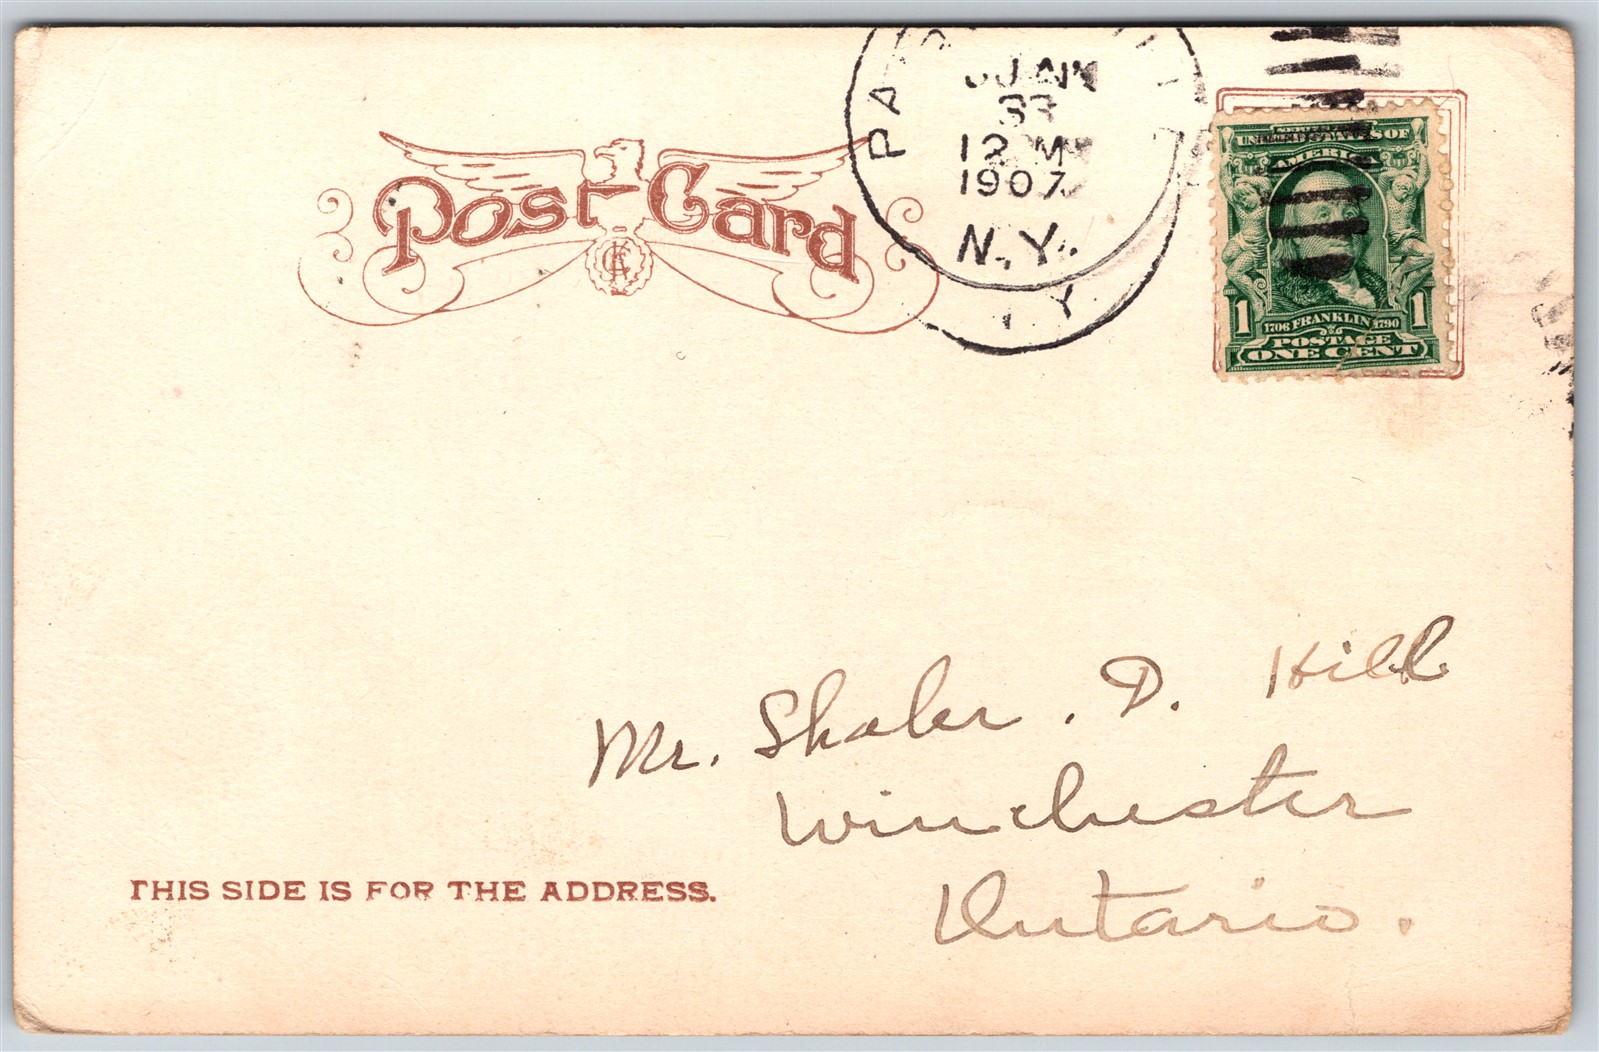 Post Card
JAN
12 M
1907
N.Y.
Y
UNITED STATES OF
AMERICA
1 1706 FRANKLIN 1790 1
POSTAGE
ONE CENT
Mr. Shaler. D. Hill
Winchester
Ontario.
THIS SIDE IS FOR THE ADDRESS.